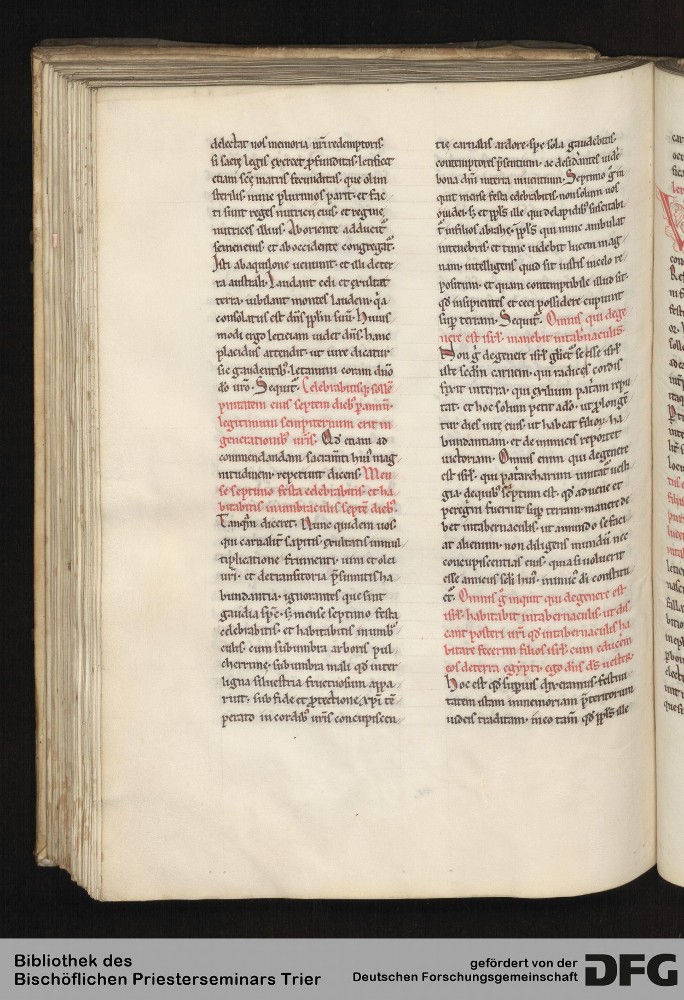 delectat uos memoria nr̄i redemptoris
si sacrę legis exercet ꝓfunditas· letificet
etiam scē matris fecunditas· que olim
sterilis· nunc plurimos parit· et fac
ti sunt reges nutricii eius· et reginę
nutrices illius· Ab oriente adducit᷑
semen eius· et ab occidente congregat᷑·
Isti ab aquilone ueniunt· et illi de ter
ra australi· Laudant celi et exultat
terra· iubilant montes laudem· q̇a
consolatus est dn̄s ppl̄m suū· Huius
modi ergo leticiam uidet dn̄s· hanc
placidus attendit· ut iure dicatur
sic gaudentib᷒· Letamini coram dn̄o
dō ur̄o· Sequit᷑· Celebrabitisq; sollē
pnitatem eius septem dieb᷒ p annū·
legitimum sempiternum erit in
generationib᷒ ur̄is· Ad etiam ad
commendandam sacram̄ti hui᷒ mag
nitudinem· repetiuit dicens· Men
se septimo festa celebrabitis· et ha
bitabitis in umbraculis septē dieb᷒·
Tanq̄m diceret· Nunc quidem uos
qui carnalit᷑ sapitis· exultatis in mul
tiplicatione frumenti· uini et olei
ur̄i· et de transitoria p̄sumitis ha
bundantia· ignorantes que sint
gaudia spē· s; mense septimo festa
celebrabitis· et habitabitis in umb᷒
culis· cum sub umbra arboris pul
cherrimę· sub umbra mali qd̄ inter
ligna siluestria fructuosum appa
ruit· sub fide et ꝓtectione xp̄i tē
perato in cordib᷒ ur̄is concupiscen
tie carnalis ardore· spe sola gaudebitis
contemptores p̄sentium· ac desid̓antes uidē
bona dn̄i in terra uiuentium· Septimo ḡ in
quit mense festa celebrabitis· non solum uos
o iudei· s; et ppl̄s ille qui de lapidib᷒ suscitabi
t᷑ in filios abrahę· ppl̄s qui nunc ambulat
in tenebris· et tunc uidebit lucem mag
nam· intelligens quid sit iustis in celo re
positum· et quam contemptibile illud sit·
qd̄ insipientes et ceci possidere cupiunt
sup̱ terram· Sequit᷑· Omnis qui de ge
nere est isrl̄· manebit in tab̄naculis·
Non ḡ de genere isrl̄ gl̄iet᷑ se esse isrl̄
iste scd̄m carnem· qui radices cordis
fixit in terra· qui exilium patām repu
tat· et hoc solum petit a dō· ut ꝓlongē
tur dies uite eius· ut habeat filios· ha
bundantiam· et de inimicis reportet
uictoriam· Omnis enim qui de genere
est isrl̄· qui pat̓archarum imitat᷑ uesti
gia· de quib᷒ sc̄ptum est· qd̄ aduenę et
peregrini fuerint sup̱ terram· manere de
bet in tabernaculis· ut a mundo se faci
at alienum· non diligens mundū nec
concupiscentias eius· quia si uoluerit
esse amicus scl̄i hui᷒· inimic᷒ dī constitu
et᷑· Omnis ḡ inquit qui de genere est
isrl̄· habitabit in tabernaculis· ut dis
cant posteri ur̄i qd̄ in tabernaculis ha
bitare fecerim filios isrl̄· cum educem̄
eos de terra egypti· ego dn̄s ds̄ uester·
Hoc est qd̄ sup̱ius dixeramus· festiui
tatem istam in memoriam p̄teritorum
iudeis traditam· in eo tam̄ qd̄ ppl̄s ille
Bibliothek des
Bischöflichen Priesterseminars Trier
gefördert von der
Deutschen Forschungsgemeinschaft
DFG